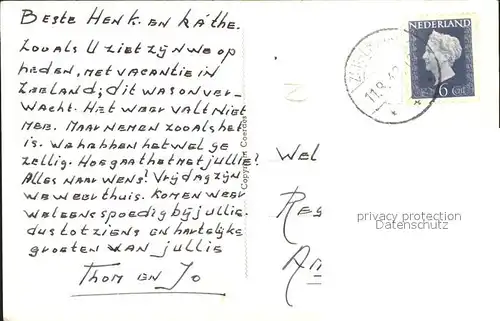 Beste Henk. en Käthe.
Zooals U ziet zijn we op
heden, met vacantie in
Zeeland; dit was onver-
wacht. Het weer valt niet
mee. Maar nemen zooals het
is. We hebben het wel ge
zellig. Hoe gaat het met jullie?
Alles naar wens! Vrijdag zijn
we weer thuis. Komen weer
wel eens spoedig bij jullie.
dus tot ziens en hartelijke
groeten van jullie
Thom en Jo
Copyright Coerdes
NEDERLAND
6 ct
Wel
Re
A
privacy protection
Datenschutz